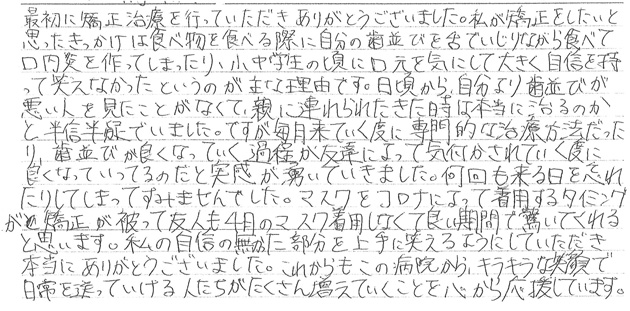 最初に矯正治療を行っていただきありがとうございました。私が矯正をしたいと
思ったきっかけは食べ物を食べる際に自分の歯並びを舌でいじりながら食べて
口内炎を作ってしまったり、小中学生の頃に口元を気にして大きく自信を持
って笑えなかったというのが主な理由です。日頃から、自分より歯並びが
悪い人を見たことがなくて、親に連れられたきた時は本当に治るのか
と半信半疑でいました。ですが毎月来ていく度に専門的な治療方法だった
り、歯並びが良くなっていく過程が友達によって気付かされていく度に
良くなっていってるのだと実感が湧いていきました。何回も来る日を忘れ
たりしてしまってすみませんでした。マスクをコロナによって着用するタイミング
がと矯正が被って友人も4月のマスク着用しなくて良い期間で驚いてくれる
と思います。私の自信の無かた部分を上手に笑えるようにしていただき
本当にありがとうございました。これからもこの病院から、キラキラな笑顔で
日常を送っていける人たちがたくさん増えていくことを心から応援しています。